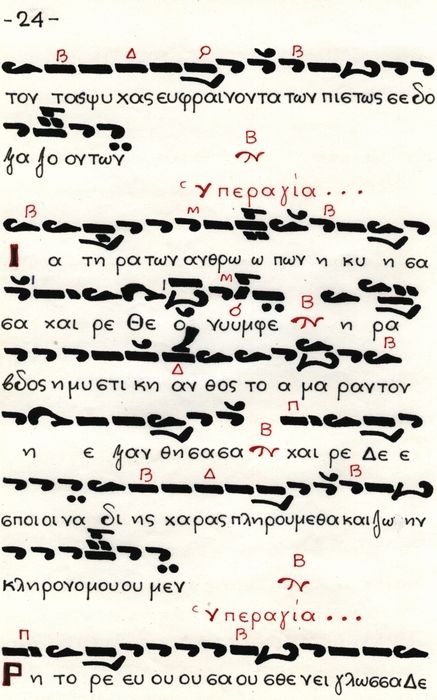 -24-
τον τας ψυ χας ευφραινοντα των πιστως σε δο
ξα ζο ον των
Ὑπεραγία...
Ι α τη ρα των ανθρω ω πων η κυ η σα
σα χαι ρε Θε ο νυυμφε η ρα
βδος η μυ στι κη αν θος το α μα ραν τον
η ε ξαν θη σα σα χαι ρε Δε ε
σποι οι να δι ης χαρας πληρουμεθα και ζω ην
κληρονομου ου μεν
Ὑπεραγία...
Ρ η το ρε ευ ου ου σα ου σθε νει γλωσσα Δε